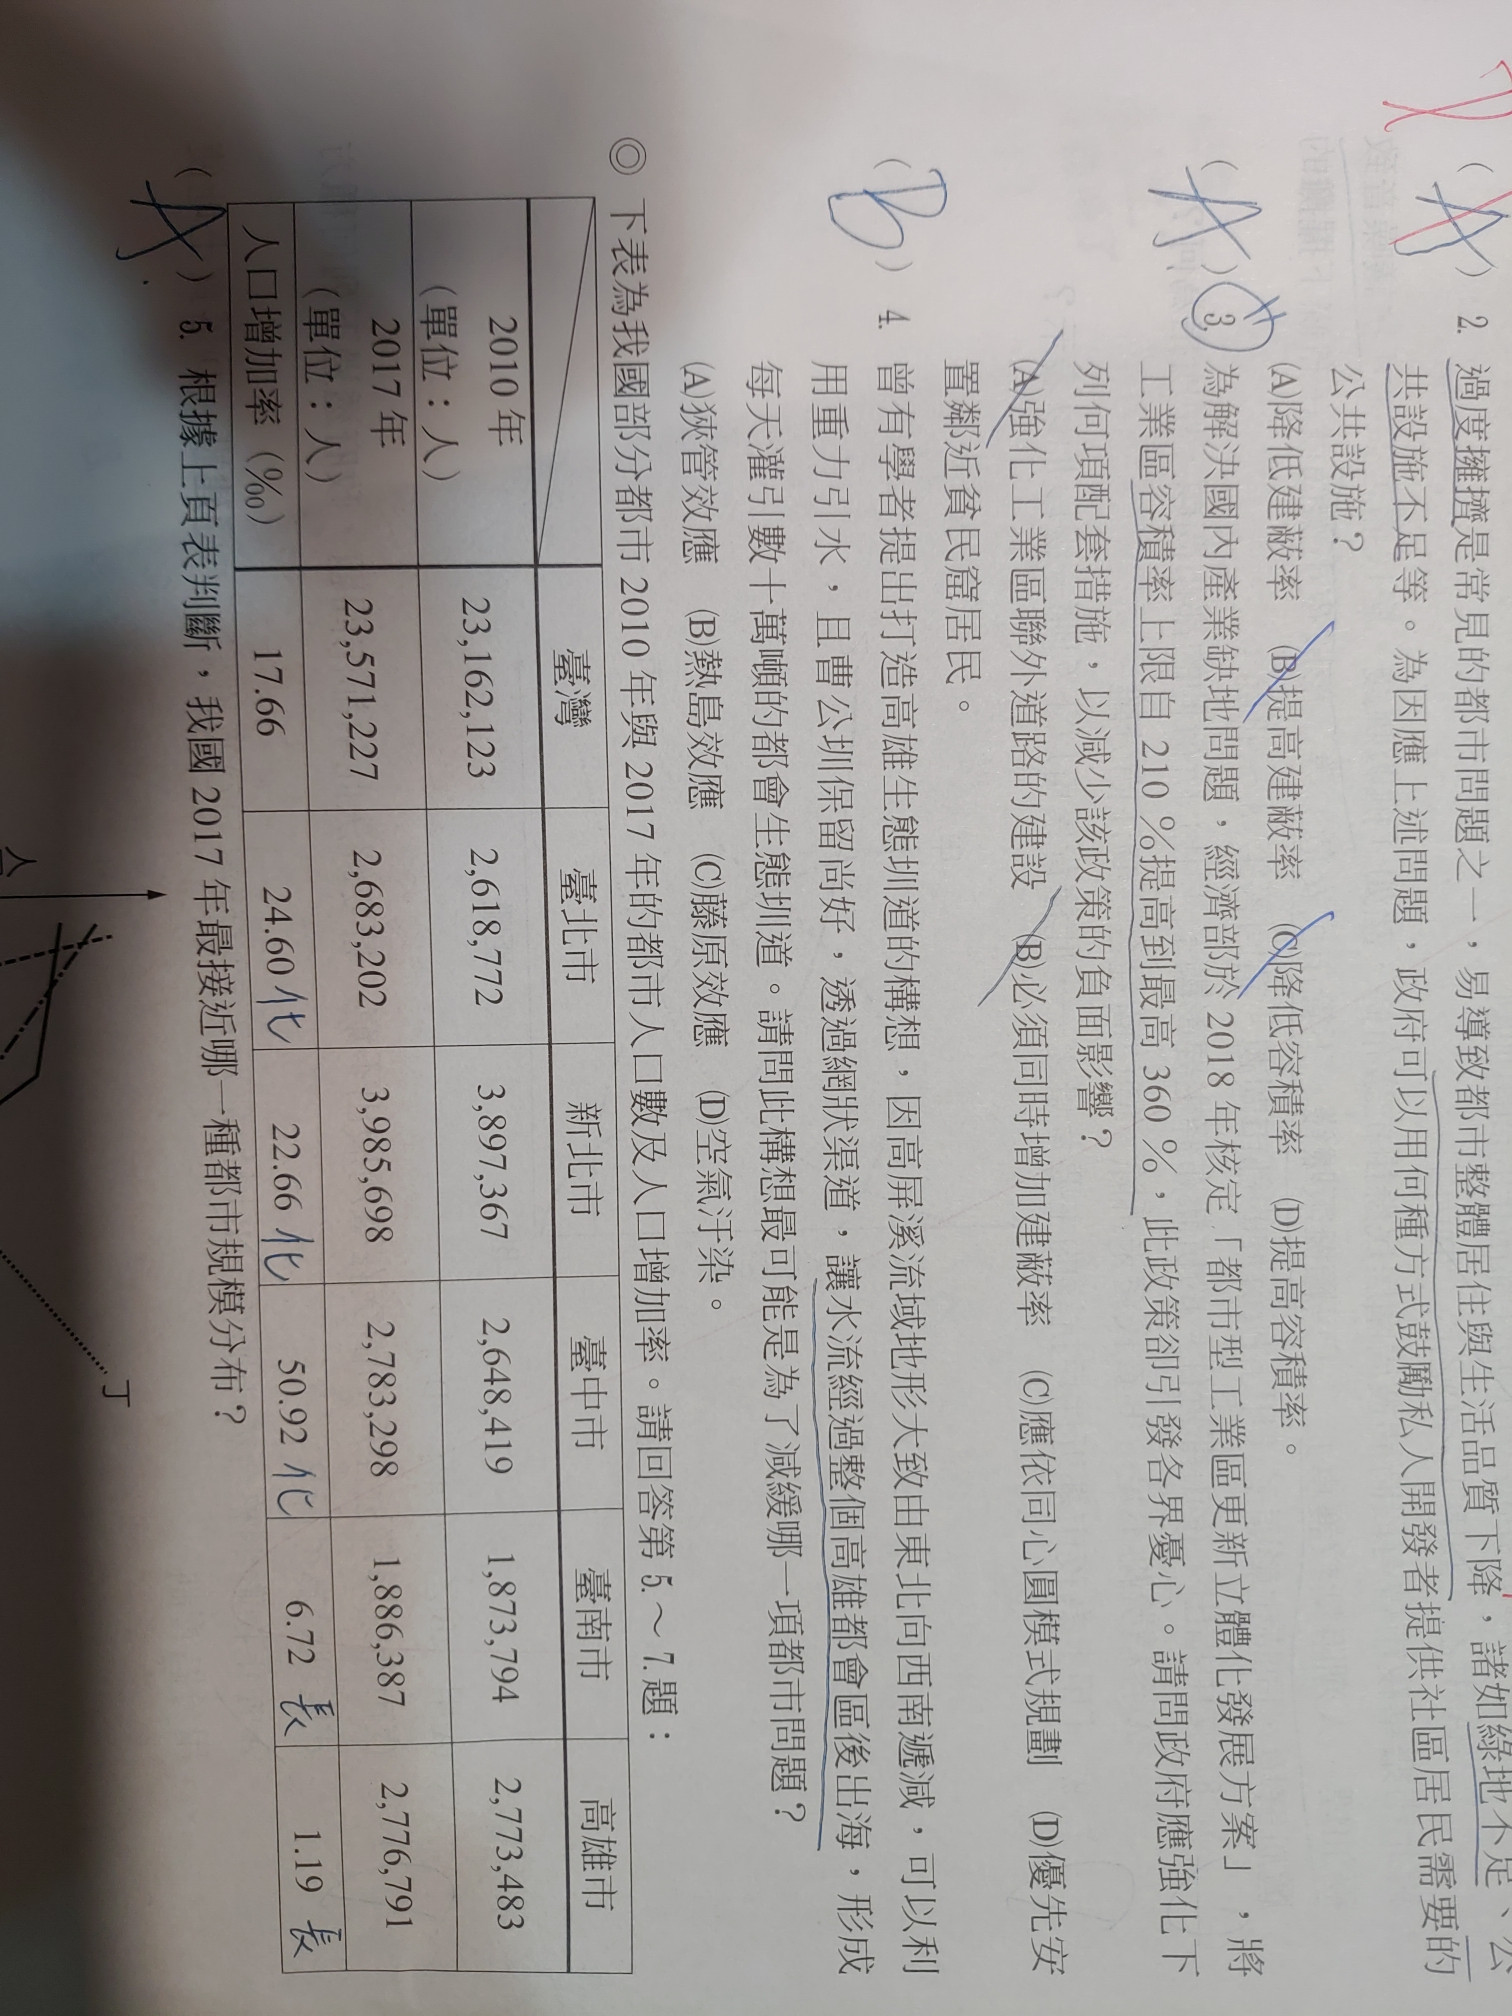 (A) 2. 過度擁擠是常見的都市問題之一，易導致都市整體居住與生活品質下降，諸如綠地不足、公
共設施不足等。為因應上述問題，政府可以用何種方式鼓勵私人開發者提供社區居民需要的
公共設施？
(A)降低建蔽率 (B)提高建蔽率 (C)降低容積率 (D)提高容積率。
(A) 3. 為解決國內產業缺地問題，經濟部於 2018 年核定「都市型工業區更新立體化發展方案」，將
工業區容積率上限自 210 %提高到最高 360 %，此政策卻引發各界憂心。請問政府應強化下
列何項配套措施，以減少該政策的負面影響？
(A)強化工業區聯外道路的建設 (B)必須同時增加建蔽率 (C)應依同心圓模式規劃 (D)優先安
置鄰近貧民窟居民。
(B) 4. 曾有學者提出打造高雄生態圳道的構想，因高屏溪流域地形大致由東北向西南遞減，可以利
用重力引水，且曹公圳保留尚好，透過網狀渠道，讓水流經過整個高雄都會區後出海，形成
每天灌引數十萬噸的都會生態圳道。請問此構想最可能是為了減緩哪一項都市問題？
(A)狹管效應 (B)熱島效應 (C)藤原效應 (D)空氣汙染。
◎ 下表為我國部分都市 2010 年與 2017 年的都市人口數及人口增加率。請回答第 5.～7.題：
臺灣 臺北市 新北市 臺中市 臺南市 高雄市
2010 年
（單位：人） 23,162,123 2,618,772 3,897,367 2,648,419 1,873,794 2,773,483
2017 年
（單位：人） 23,571,227 2,683,202 3,985,698 2,783,298 1,886,387 2,776,791
人口增加率（‰） 17.66 24.60 化 22.66 化 50.92 化 6.72 長 1.19 長
(A) 5. 根據上頁表判斷，我國 2017 年最接近哪一種都市規模分布？
丁